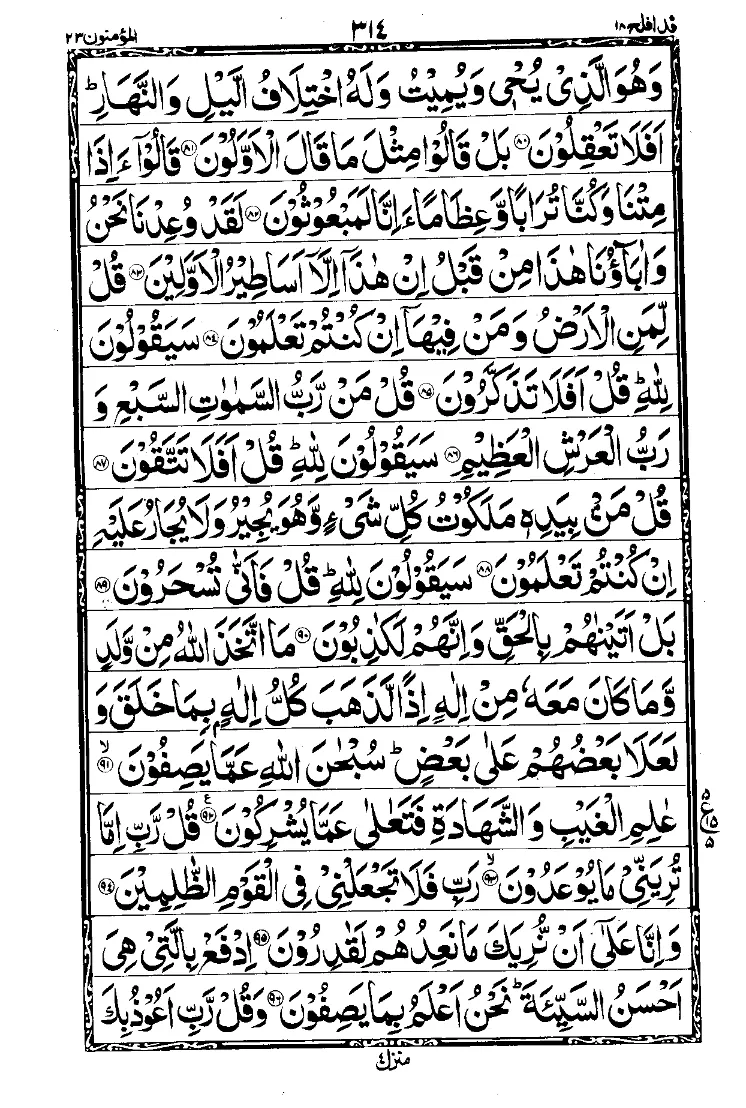 قد افلح ١٨ ٣١٤ المؤمنون ٢٣
وَهُوَ الَّذِىْ يُحْىٖ وَيُمِيْتُ وَلَهُ اخْتِلَافُ الَّيْلِ وَالنَّهَارِ ؕ
اَفَلَا تَعْقِلُوْنَ ﴿۸۰﴾ بَلْ قَالُوْا مِثْلَ مَا قَالَ الْاَوَّلُوْنَ ﴿۸۱﴾ قَالُوْٓا ءَاِذَا
مِتْنَا وَكُنَّا تُرَابًا وَّعِظَامًا ءَاِنَّا لَمَبْعُوْثُوْنَ ﴿۸۲﴾ لَقَدْ وُعِدْنَا نَحْنُ
وَاٰبَآؤُنَا هٰذَا مِنْ قَبْلُ اِنْ هٰذَآ اِلَّآ اَسَاطِيْرُ الْاَوَّلِيْنَ ﴿۸۳﴾ قُلْ
لِّمَنِ الْاَرْضُ وَمَنْ فِيْهَآ اِنْ كُنْتُمْ تَعْلَمُوْنَ ﴿۸۴﴾ سَيَقُوْلُوْنَ
لِلّٰهِ ؕ قُلْ اَفَلَا تَذَكَّرُوْنَ ﴿۸۵﴾ قُلْ مَنْ رَّبُّ السَّمٰوٰتِ السَّبْعِ وَ
رَبُّ الْعَرْشِ الْعَظِيْمِ ﴿۸۶﴾ سَيَقُوْلُوْنَ لِلّٰهِ ؕ قُلْ اَفَلَا تَتَّقُوْنَ ﴿۸۷﴾
قُلْ مَنْۢ بِيَدِهٖ مَلَكُوْتُ كُلِّ شَىْءٍ وَّهُوَ يُجِيْرُ وَلَا يُجَارُ عَلَيْهِ
اِنْ كُنْتُمْ تَعْلَمُوْنَ ﴿۸۸﴾ سَيَقُوْلُوْنَ لِلّٰهِ ؕ قُلْ فَاَنّٰى تُسْحَرُوْنَ ﴿۸۹﴾
بَلْ اَتَيْنٰهُمْ بِالْحَقِّ وَاِنَّهُمْ لَكٰذِبُوْنَ ﴿۹۰﴾ مَا اتَّخَذَ اللّٰهُ مِنْ وَّلَدٍ
وَّمَا كَانَ مَعَهٗ مِنْ اِلٰهٍ اِذًا لَّذَهَبَ كُلُّ اِلٰهٍۢ بِمَا خَلَقَ وَ
لَعَلَا بَعْضُهُمْ عَلٰى بَعْضٍ ؕ سُبْحٰنَ اللّٰهِ عَمَّا يَصِفُوْنَ ﴿۹۱﴾ ۙ
عٰلِمِ الْغَيْبِ وَالشَّهَادَةِ فَتَعٰلٰى عَمَّا يُشْرِكُوْنَ ﴿۹۲﴾ ع قُلْ رَّبِّ اِمَّا
٥ ع ١٥ ٥
تُرِيَنِّىْ مَا يُوْعَدُوْنَ ﴿۹۳﴾ ۙ رَبِّ فَلَا تَجْعَلْنِىْ فِى الْقَوْمِ الظّٰلِمِيْنَ ﴿۹۴﴾
وَاِنَّا عَلٰٓى اَنْ نُّرِيَكَ مَا نَعِدُهُمْ لَقٰدِرُوْنَ ﴿۹۵﴾ اِدْفَعْ بِالَّتِىْ هِىَ
اَحْسَنُ السَّيِّئَةَ ؕ نَحْنُ اَعْلَمُ بِمَا يَصِفُوْنَ ﴿۹۶﴾ وَقُلْ رَّبِّ اَعُوْذُ بِكَ
منزل ٤